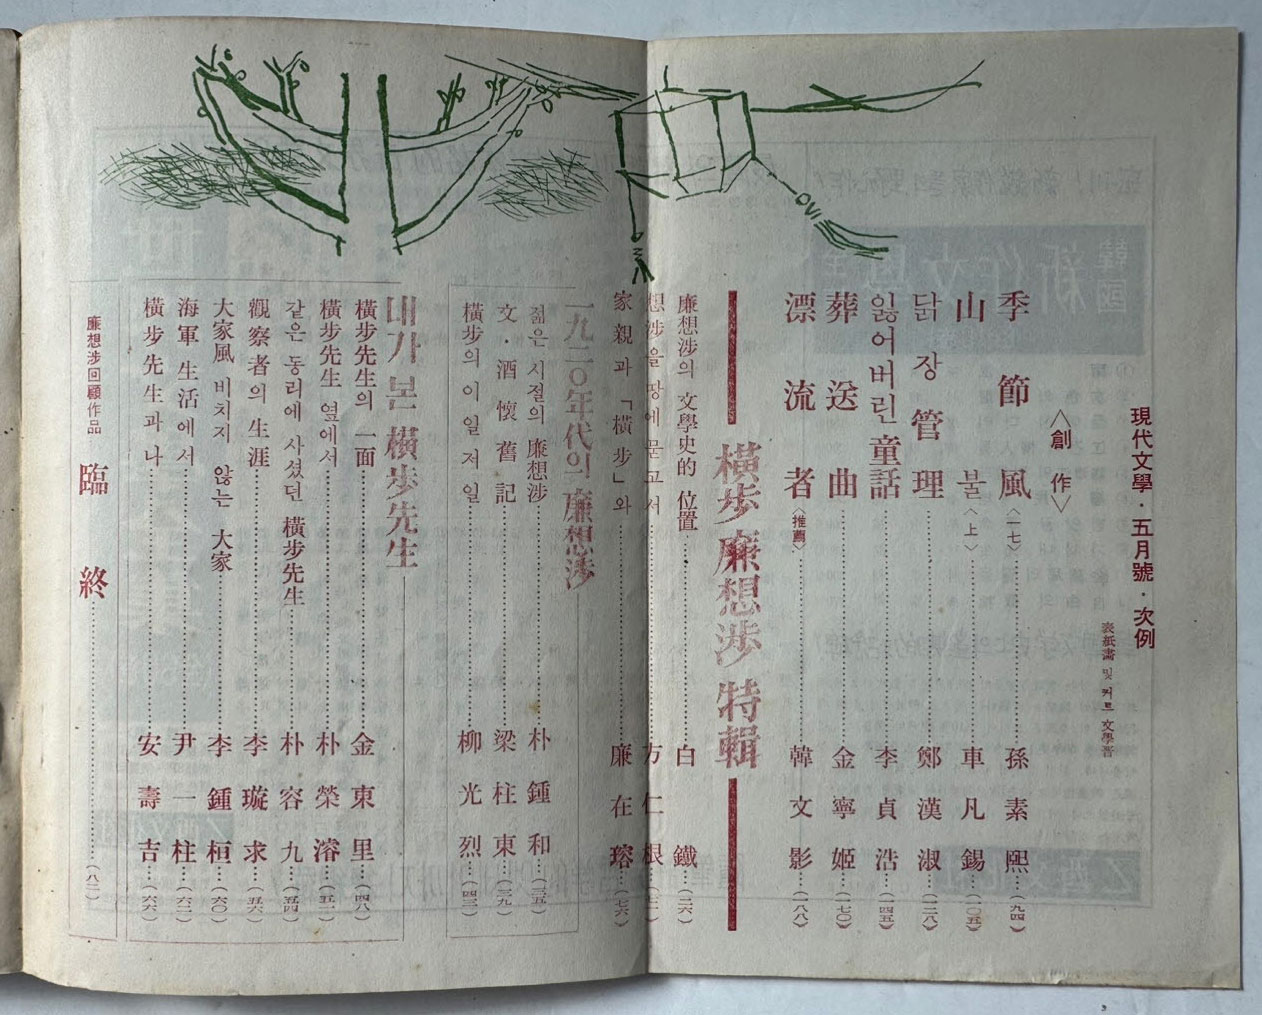 現代文學·五月號·次例
表紙畵 및 커트 文學晋
〈創作〉
季節風〈一七〉……孫素熙……(九四)
山불〈上〉……車凡錫……(一〇五)
닭장管理……鄭漢淑……(一二八)
잃어버린 童話……李貞浩……(一四五)
葬送曲……金寧姬……(一七〇)
漂流者〈推薦〉……韓文影……(一八八)
橫步 廉想涉 特輯
廉想涉의 文學史的 位置……白鐵……(二六)
想涉을 땅에 묻고서……方仁根
家親과「橫步」와……廉在瑢……(七六)
一九二〇年代의 廉想涉
젊은 시절의 廉想涉……朴鍾和……(三五)
文·酒 懷舊記……梁柱東……(三九)
橫步의 이일 저일……柳光烈……(四三)
내가 본 橫步先生
橫步先生의 一面……金東里……(四八)
橫步先生 옆에서……朴榮濬……(五一)
같은 동리에 사셨던 橫步先生……朴容九……(五四)
觀察者의 生涯……李璇求……(五六)
大家風 비치지 않는 大家……李鍾桓……(六〇)
海軍生活에서……尹一柱……(六二)
橫步先生과 나……安壽吉……(六六)
廉想涉回顧作品 臨終……(八二)